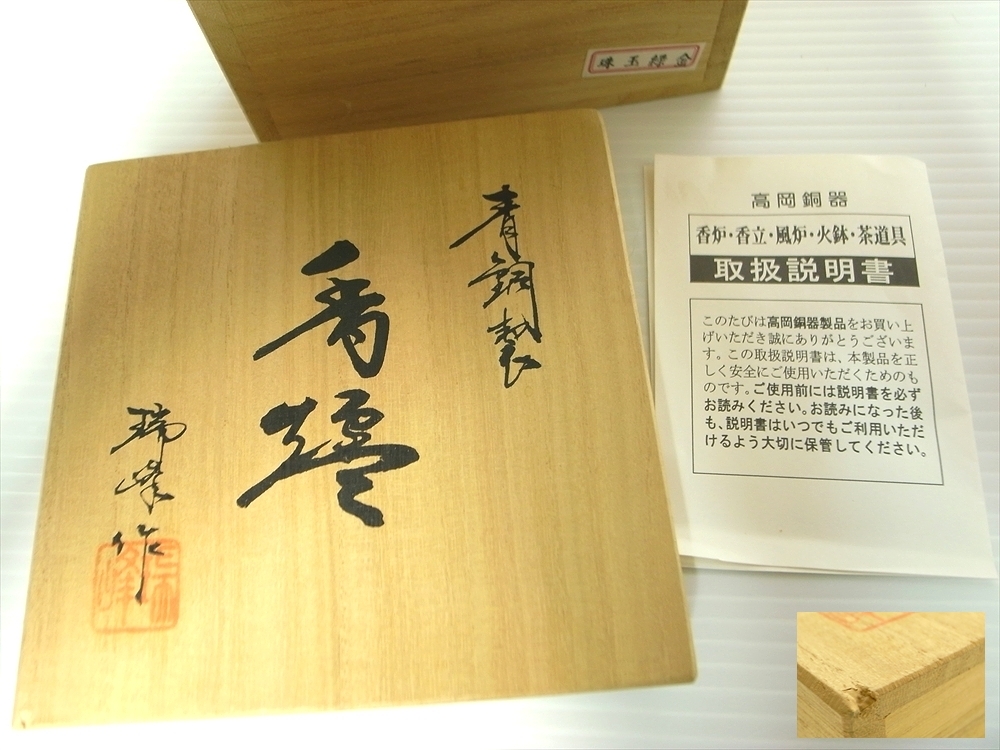 珠玉緑金
青銅製
香爐
瑞峰作
瑞峰
高岡銅器
香炉・香立・風炉・火鉢・茶道具
取扱説明書
このたびは高岡銅器製品をお買い上
げいただき誠にありがとうございま
す。この取扱説明書は、本製品を正
しく安全にご使用いただくためのも
のです。ご使用前には説明書を必ず
お読みください。お読みになった後
も、説明書はいつでもご利用いただ
けるよう大切に保管してください。